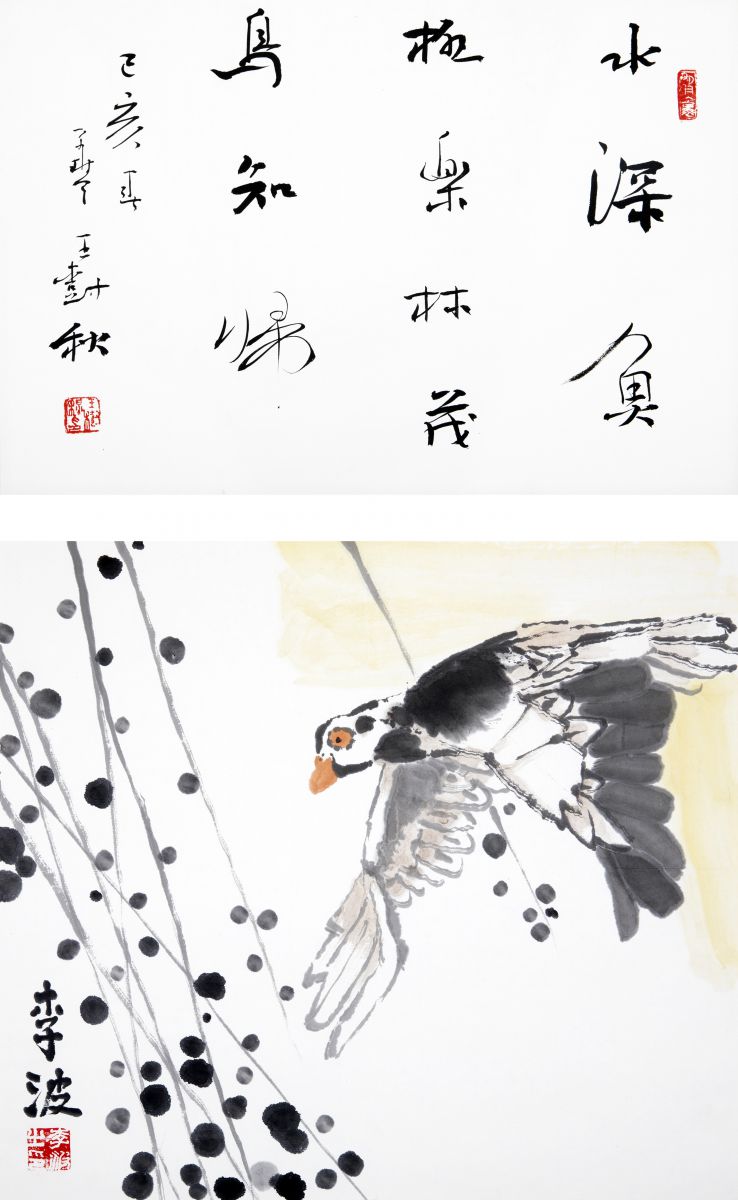 水深魚
極樂林茂
鳥知歸
己亥
王樹秋
李波